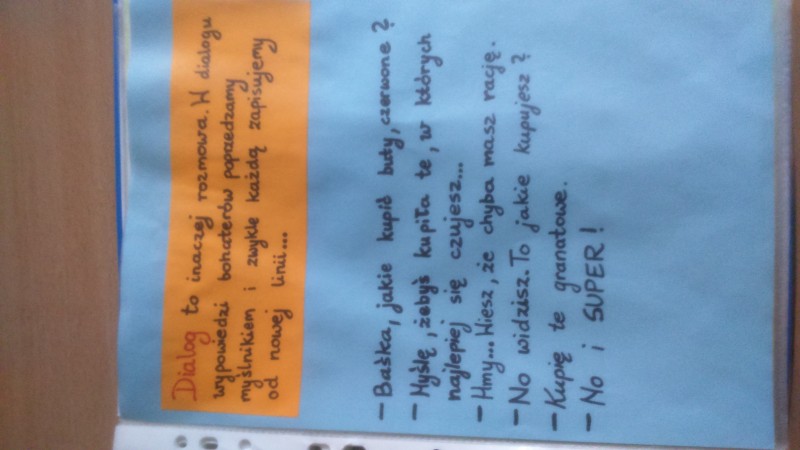 Dialog to inaczej rozmowa. W dialogu
wypowiedzi bohaterów poprzedzamy
myślnikiem i zwykle każdą zapisujemy
od nowej linii...
- Baśka, jakie kupić buty, czerwone?
- Myślę, żebyś kupiła te, w których
najlepiej się czujesz...
- Hmy... Wiesz, że chyba masz rację.
- No widzisz. To jakie kupujesz?
- Kupię te granatowe.
- No i SUPER!